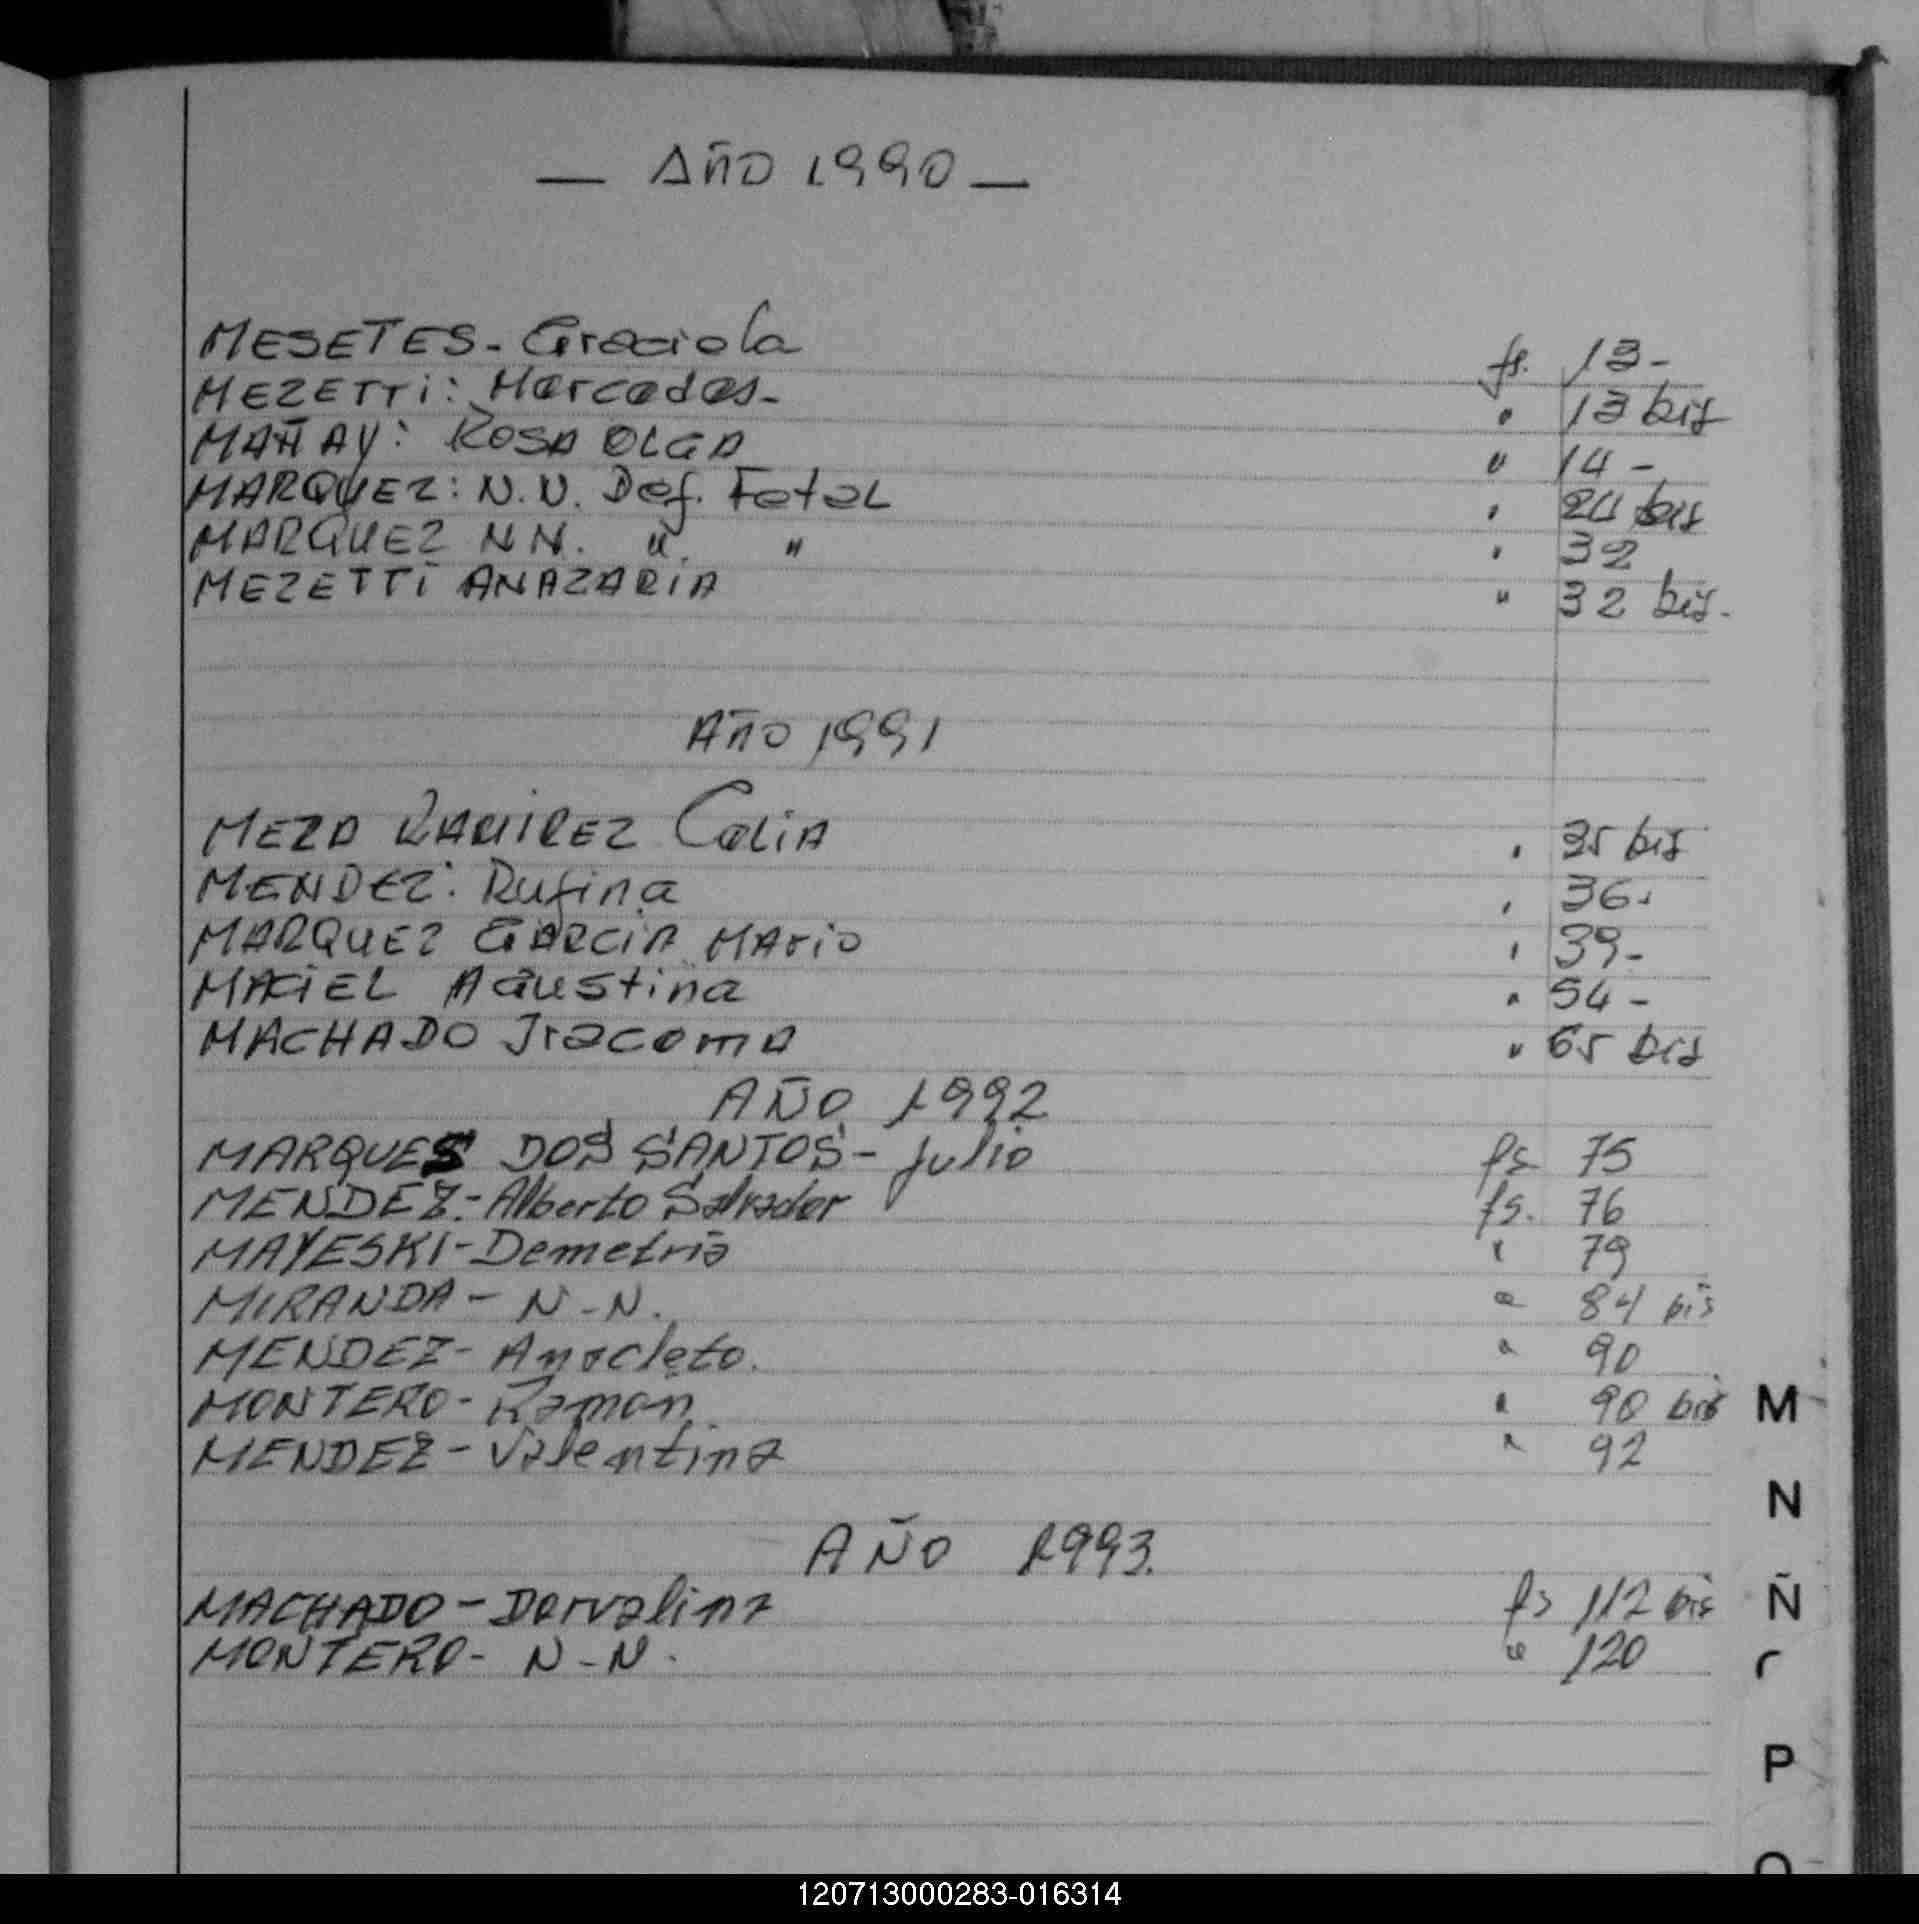 — AÑO 1990 —
MESETES - Graciela fs. 13 -
MEZETTI: Mercedes - " 13 bis
MAÑAY: ROSA OLGA " 14 -
MARQUEZ: N.N. Def. Fetal " bis
MARQUEZ NN. " " " 32
MEZETTI ANAZARIA " 32 bis.
AÑO 1991
MEZA RAMIREZ CeliA " 35 bis
MENDEZ: Rufina " 36 -
MARQUEZ GARCIA MArio " 39 -
MACIEL AGustina " 54 -
MACHADO Iracema " 65 bis
AÑO 1992
MARQUES DOS SANTOS - Julio fs 75
MENDEZ - Alberto Salvador fs. 76
MAYESKI - Demetria " 79
MIRANDA - N - N. " 84 bis
MENDEZ - Anacleto. " 90
MONTERO - Ramon. " 90 bis
MENDEZ - Valentina " 92
AÑO 1993.
MACHADO - Dorvalina fs 112 bis
MONTERO - N - N. " 120
M
N
Ñ
P
120713000283-016314